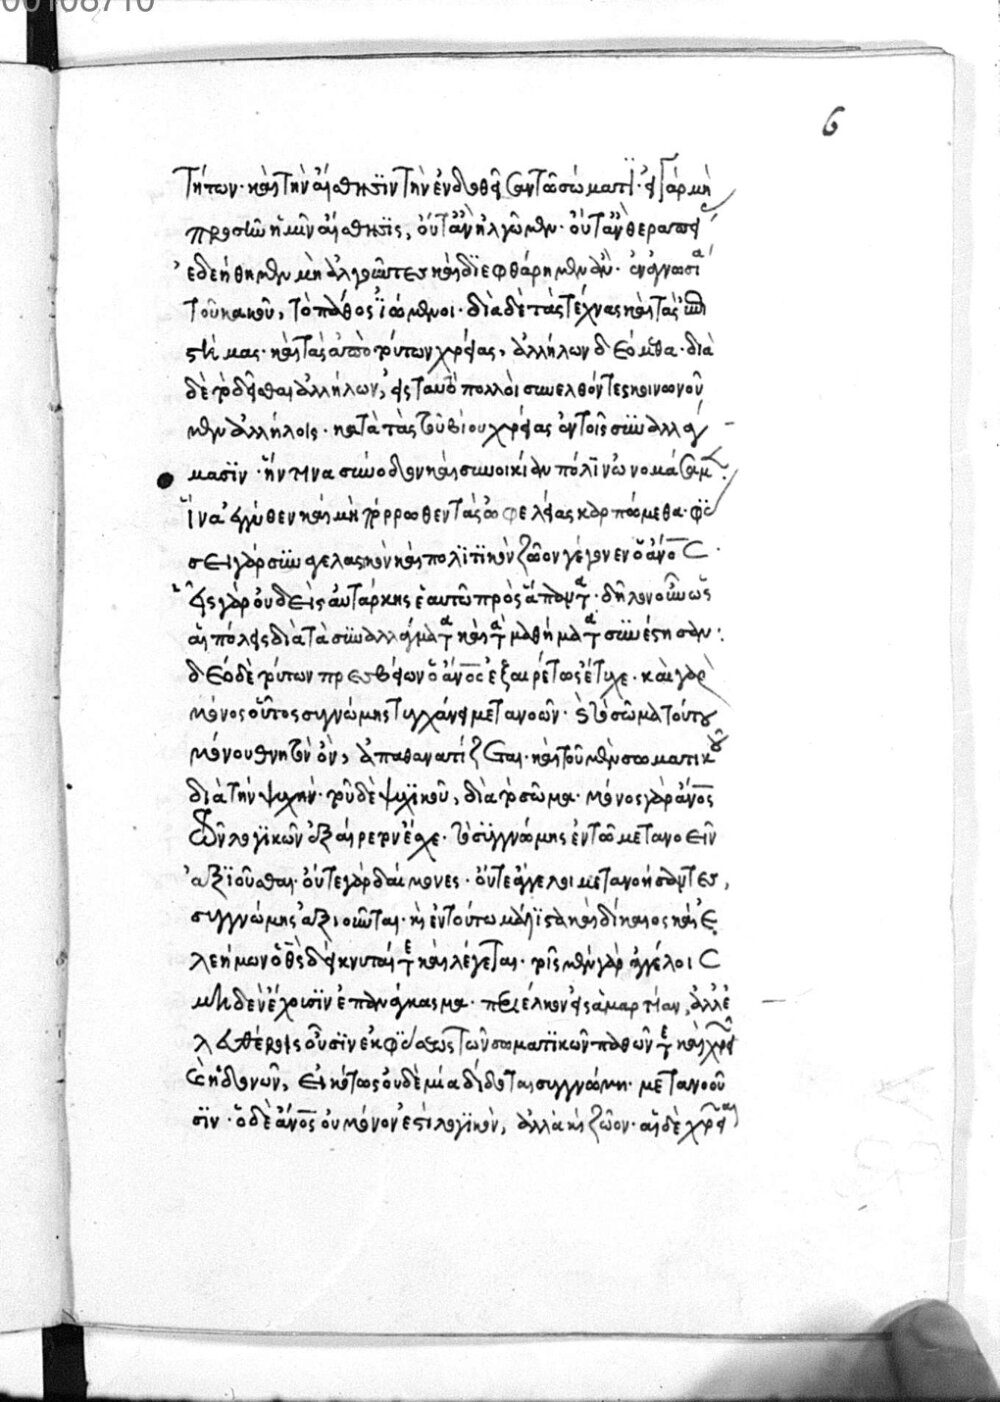 00108710
6
τήτων· καὶ τὴν αἴσθησϊν τὴν ἐνδοθεῖσαν τῶ σώματϊ· εἰ γὰρ μὴ
προσῆν ἡμῖν αἴσθησϊς, οὔτ' ἂν ἠλγῶμεν· οὔτ' ἂν θεραπεί
ἐδεήθημεν μὴ ἀλγοῦντες καὶ διεφθάρημεν ἂν· ἐν ἀγνωσία
τοῦ κακοῦ, τὸ πάθος ϊώμενοι· διὰ δὲ τὰς τέχνας καὶ τὰς ἐπι
στήμας· καὶ τὰς ἀπὸ τούτων χρείας, ἀλλήλων δεόμεθα· διὰ
δὲ τὸ δεῖσθαι ἀλλήλων, εἰς ταυτὸ πολλοὶ συνελθόντες κοινωνοῦ
μεν ἀλλήλοις· κατὰ τὰς τοῦ βίου χρείας ἐν τοῖς συναλλά
μασϊν· ἥντινα σύνοδον καὶ συνοικίαν πόλϊν ὠνομάσαμεν·
ἵνα ἐγγύθεν καὶ μὴ πόρρωθεν τὰς ὠφελείας καρπώμεθα· φύ
σει γὰρ συναγελαστικὸν καὶ πολϊτϊκὸν ζῶον γέγονεν ὁ ἄνος·
εἷς γὰρ οὐδεὶς αὐτάρκης ἑαυτῶ πρὸς ἅπαντα· δῆλον οὖν ὡς
αἱ πόλεις διὰ τὰ συναλλάγματα καὶ τὰ μαθήματα συνέστησαν·
δύο δὲ τούτων πρεσβείων ὁ ἄνος ἐξαιρέτως ἔτυχε· καὶ γὰρ
μόνος οὗτος συγνώμης τυγχάνει μετανοῶν· καὶ τὸ σῶμα τούτου
μόνου θνητὸν ὂν, ἀπαθανατίζεται· καὶ τοῦ μὲν σωματικοῦ
διὰ τὴν ψυχήν· τοῦ δὲ ψυχϊκοῦ, διὰ τὸ σῶμα· μόνος γὰρ ἄνος
τῶν λογϊκῶν ἐξαίρετον ἔσχε· τὸ συγγνώμης ἐν τῶ μετανοεῖν
ἀξϊοῦσθαι· οὔτε γὰρ δαίμονες· οὔτε ἄγγελοι μετανοήσαντες,
συγγνώμης ἀξιοῦνται· κἀν τούτω μάλϊστα καὶ δίκαιος καὶ ἐ
λεήμων ὁ θς δείκνυταί τε καὶ λέγεται· τοῖς μὲν γὰρ ἀγγέλοις
μηδὲν ἔχουσϊν ἐπάναγκασμα· πϊέλκον εἰς ἁμαρτίαν, ἀλλ' ἐ
λευθέροις οὖσϊν ἐκ φύσεως τῶν σωματϊκῶν παθῶν τε καὶ χρειῶν
καὶ ἡδονῶν, εἰκότως οὐδὲ μία δίδοται συγγνώμη· μετανοοῦ
σϊν· ὁ δὲ ἄνος οὐ μόνον ἐστὶ λογϊκὸν, ἀλλὰ καὶ ζῶον· αἱ δὲ χρεῖαι